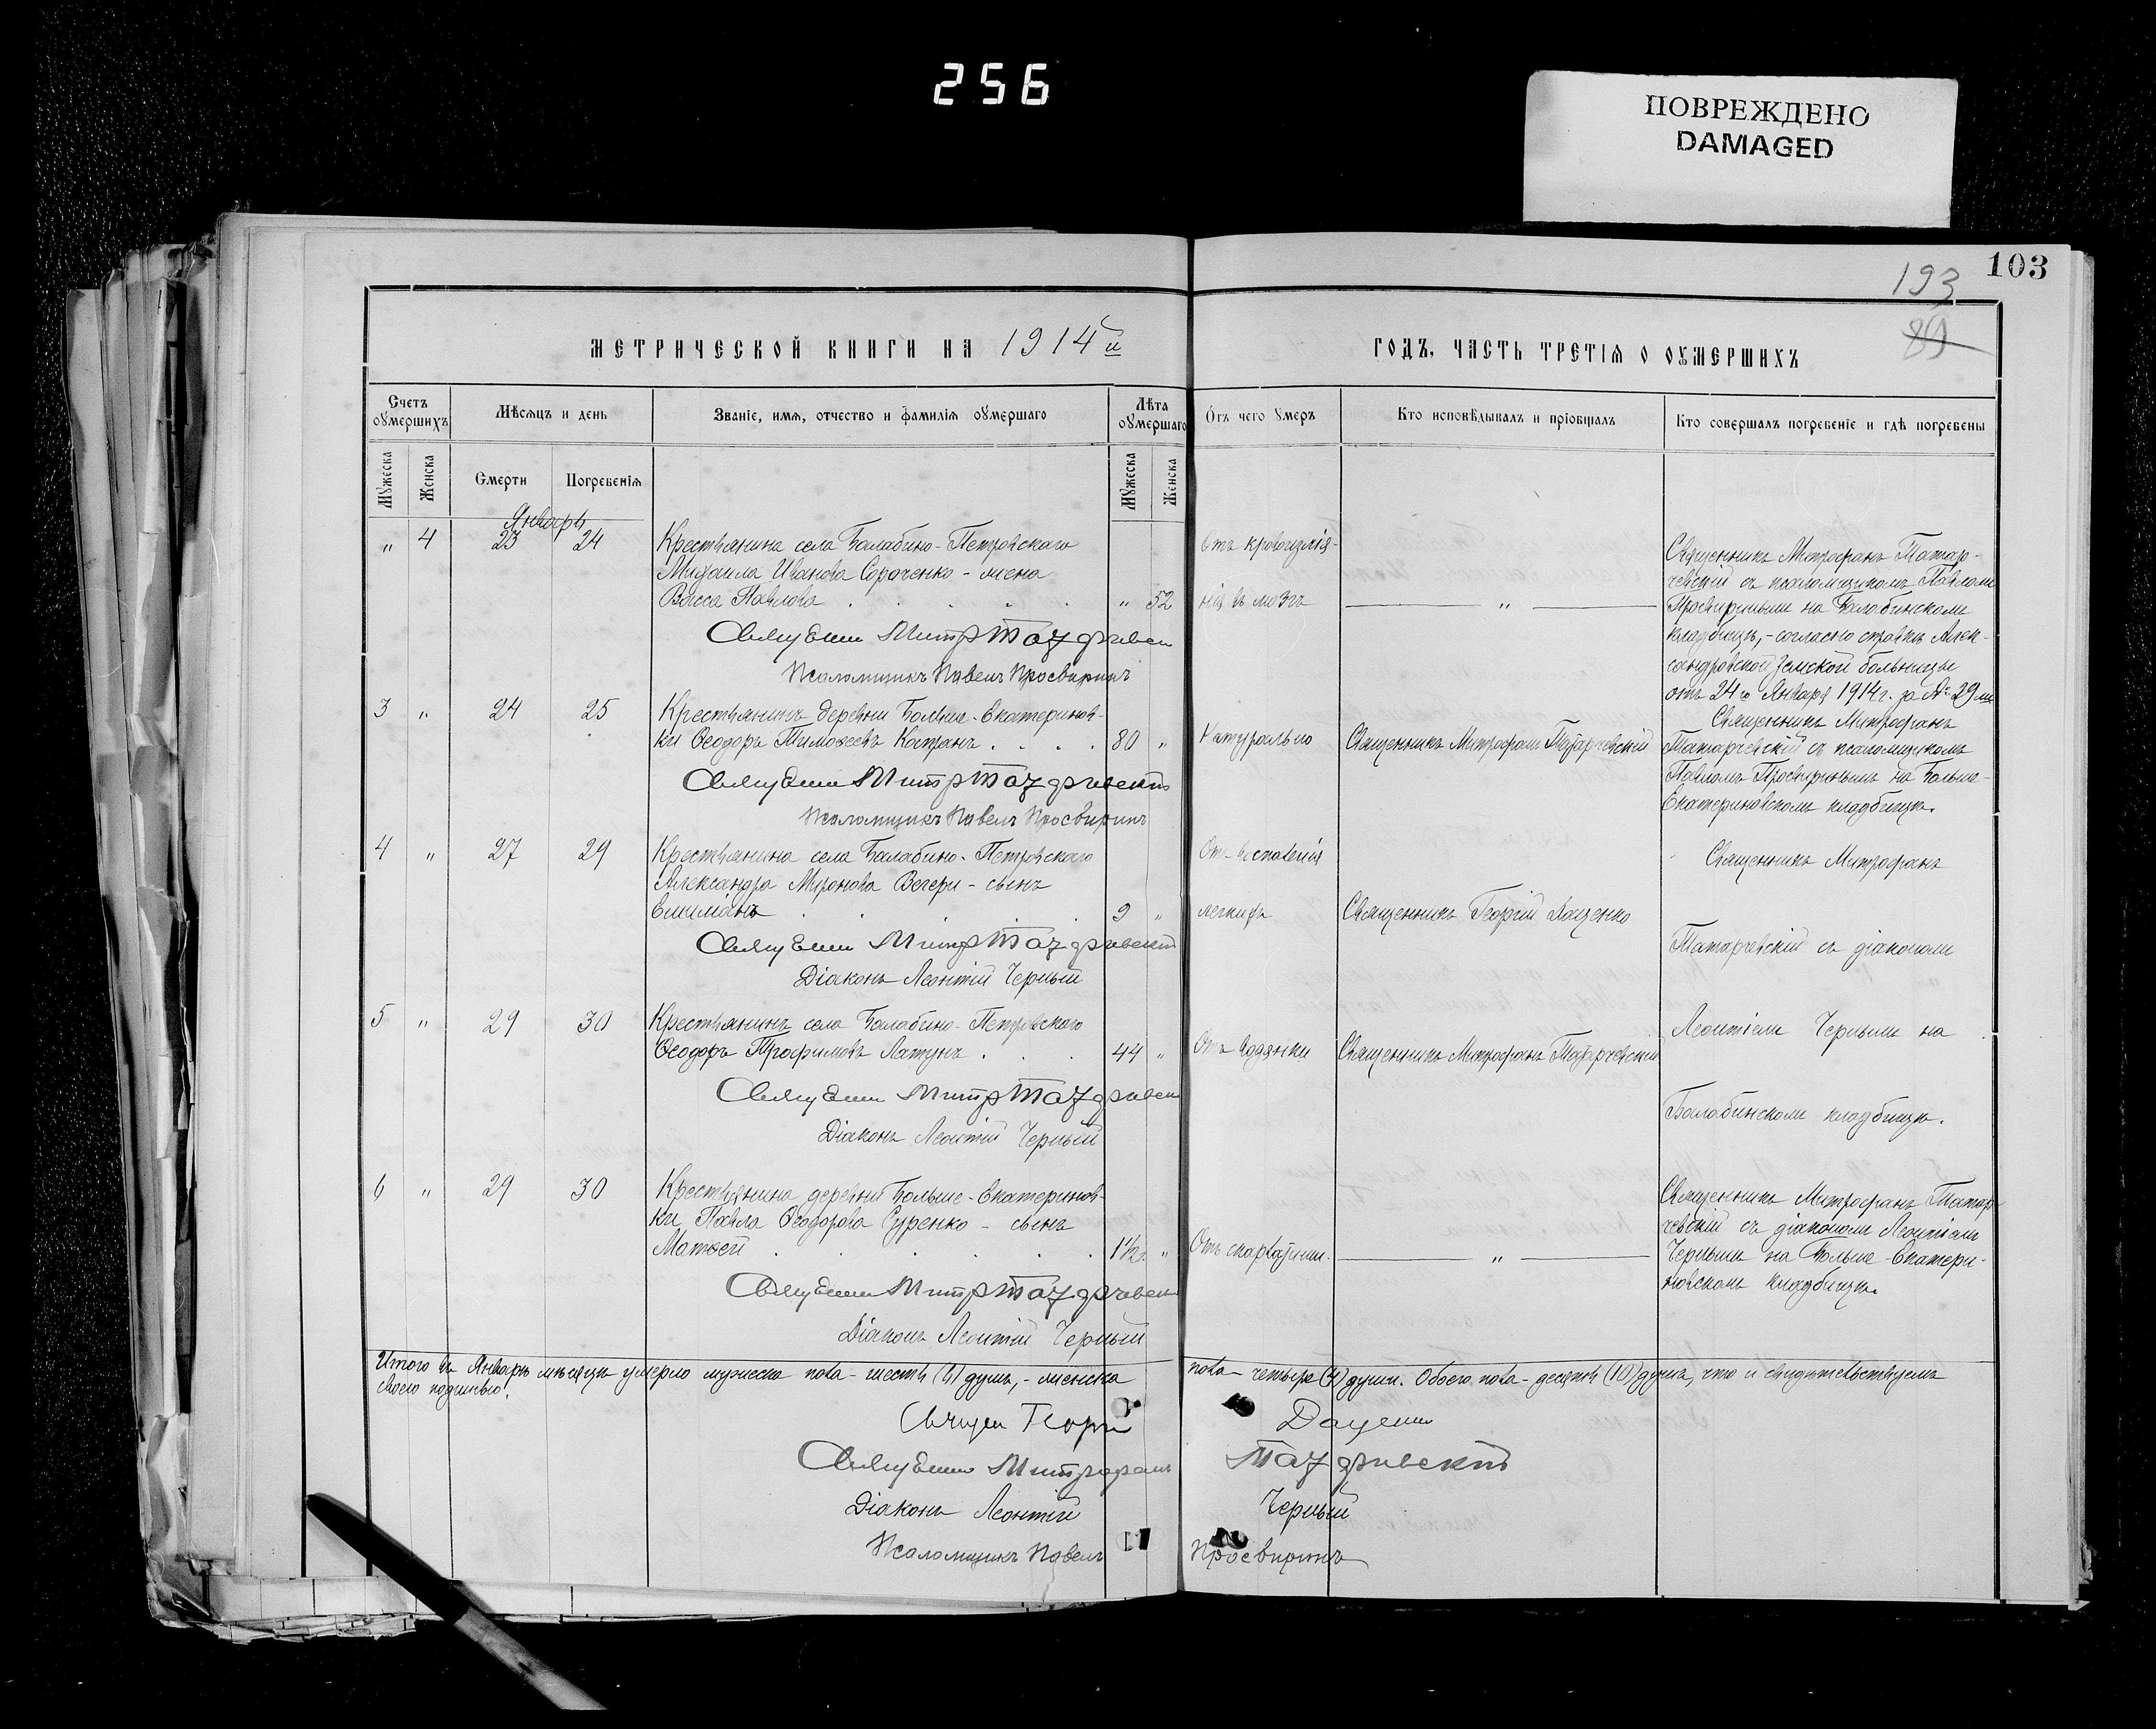 256
ПОВРЕЖДЕНО
DAMAGED
103
193
89
МЕТРИЧЕСКОЙ КНИГИ НА 1914й
ГОДЪ, ЧАСТЬ ТРЕТІЯ О ОУМЕРШИХЪ
Счетъ оумершихъ
Мѣсяцъ и день
Званіе, имя, отчество и фамилія оумершаго
Лѣта оумершаго
Отъ чего умеръ
Кто исповѣдывалъ и пріобщалъ
Кто совершалъ погребеніе и гдѣ погребены
Мужеска
Женска
Смерти
Погребенія
Мужеска
Женска
Январь
" 4 23 24
Крестьянина села Балабино-Петровскаго
Михаила Иванова Сораченко - жена
Васса Павлова . . . . . " 52
отъ кровоизлія-
нія въ мозгъ
"
Священникъ Митрофанъ Татар-
чевскій съ псаломщикомъ Павломъ
Просвирнинымъ на Балабинскомъ
кладбищѣ, - согласно справкѣ Алек-
сандровской Земской больницы
отъ 24го Января 1914г. за № 29м
Псаломщикъ Павелъ Просвиринъ
3 " 24 25
Крестьянинъ деревни Больше-Екатеринов-
ки Ѳеодоръ Тимоѳеевъ Котранъ . . . . 80 "
Натурально
Священникъ Митрофанъ Татарчевскій
Священникъ Митрофанъ
Татарчевскій съ псаломщикомъ
Павломъ Просвирнинымъ на Больше-
Екатериновскомъ кладбищѣ.
Псаломщикъ Павелъ Просвиринъ
4 " 27 29
Крестьянина села Балабино-Петровскаго
Александра Миронова Вечери - сынъ
9 "
Отъ воспаленія
легкихъ
Священникъ Георгій Даценко
Священникъ Митрофанъ
Татарчевскій съ діакономъ
Леонтіемъ Чернымъ на
Балабинскомъ кладбищѣ.
Діаконъ Леонтій Черный
5 " 29 30
Крестьянинъ села Балабино-Петровскаго
Ѳеодоръ Трофимовъ Латунъ . . . 44 "
Отъ водянки
Священникъ Митрофанъ Татарчевскій
Діаконъ Леонтій Черный
6 " 29 30
Крестьянина деревни Больше-Екатеринов-
ки Павла Ѳеодорова Суренко - сынъ
Матвей . . . . . . 1½г. "
Отъ скарлатины.
"
Священникъ Митрофанъ Татар-
чевскій съ діакономъ Леонтіемъ
Чернымъ на Больше-Екатери-
новскомъ кладбищѣ.
Діаконъ Леонтій Черный
Итого въ Январѣ мѣсяцѣ умерло мужеска пола - шесть (6) душъ, - женска пола - четыре (4) души. Обоего пола - десять (10) душъ, что и свидѣтельствуемъ
своею подписью:
Георгій Даценко
Митрофанъ
Діаконъ Леонтій Черный
Псаломщикъ Павелъ Просвиринъ